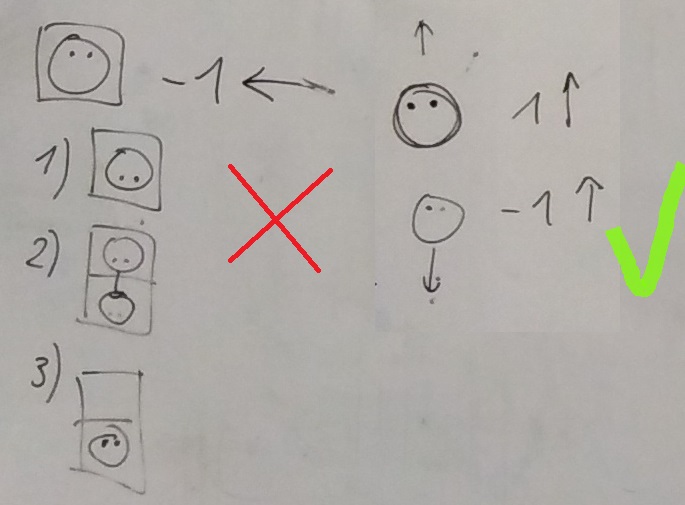 -1 ←
1)
2)
3)
↑
1 ↑
-1 ↑
↓